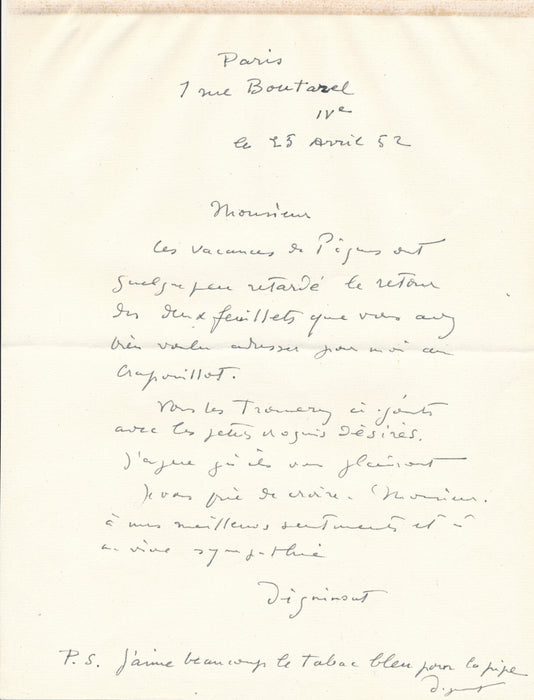 Paris
1 rue Boutarel
IVe
le 25 Avril 52
Monsieur
Les vacances de Pâques ont
quelque peu retardé le retour
des deux feuillets que vous avez
bien voulu adresser pour moi au
Crapouillot.
Vous les trouverez ci-joints
avec les petits croquis désirés.
J'espère qu'ils vous plairont
Je vous prie de croire, Monsieur,
à mes meilleurs sentiments et à
ma vive sympathie
Dignimont
P.S. J'aime beaucoup le tabac bleu pour la pipe